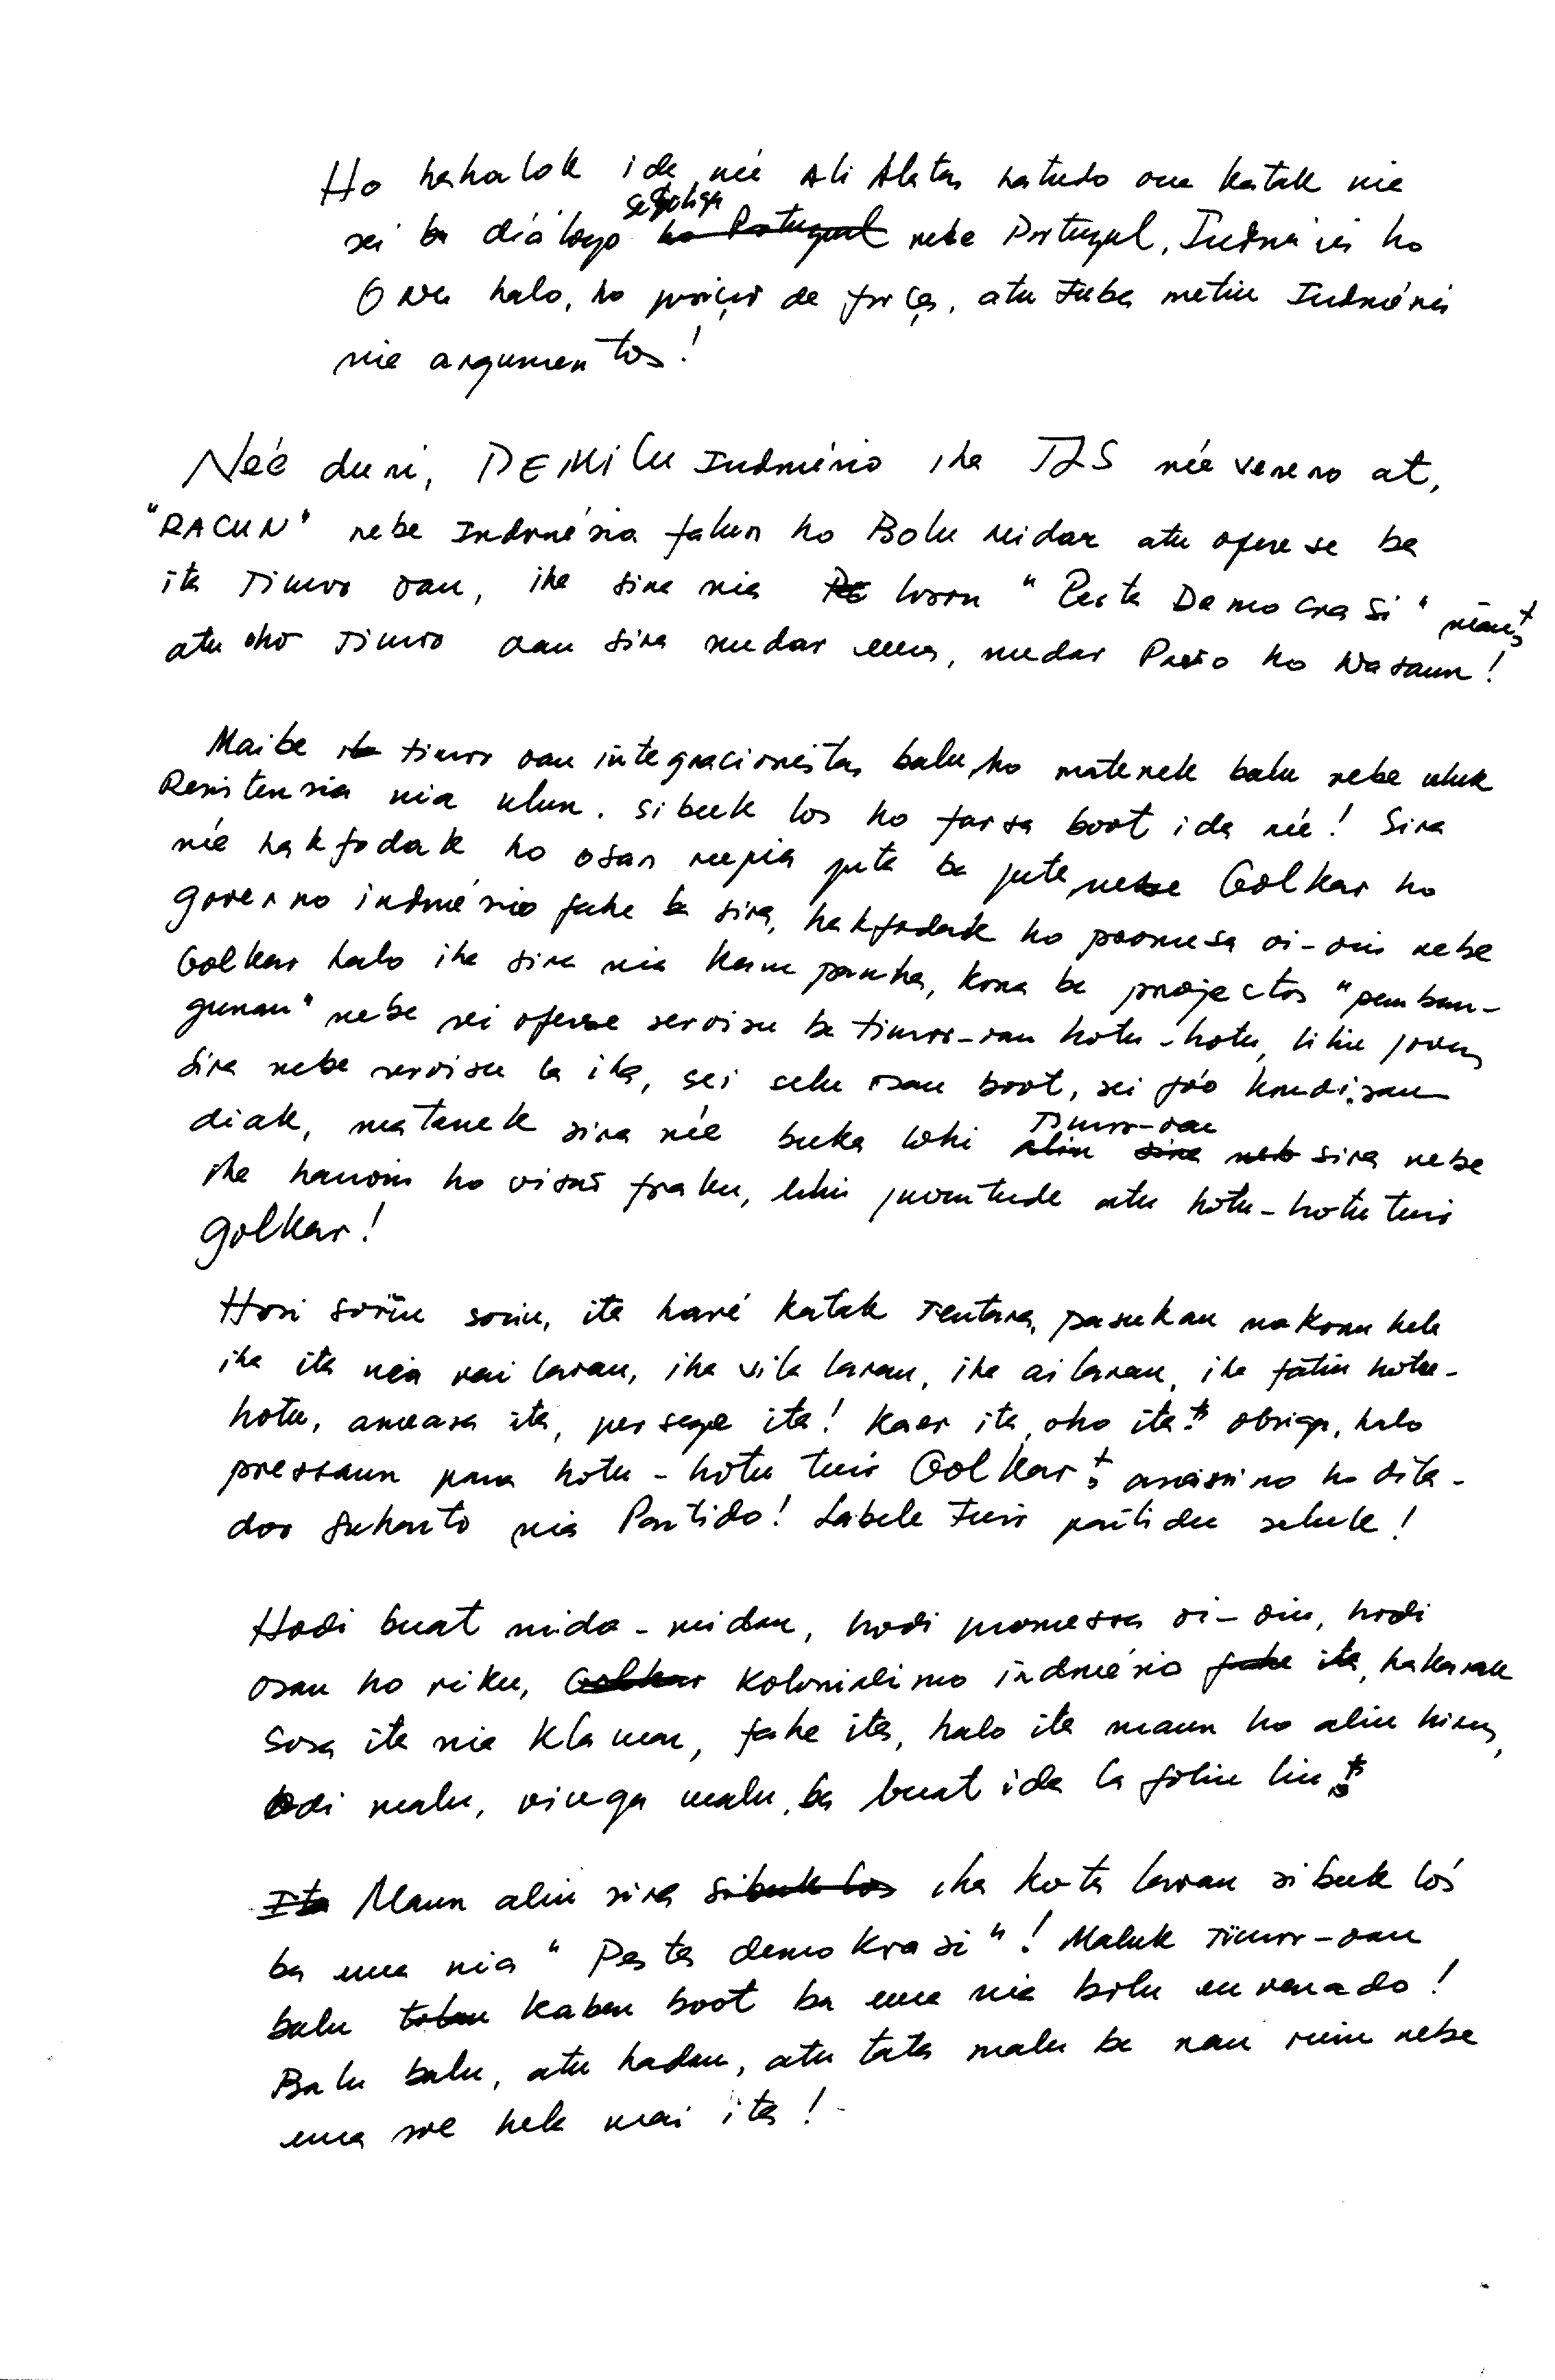 Ho hahalok ida neé Ali Alatas hatudo ona katak nia
sei ba diálogo ho Portugal nebe Portugal, Indonésia ho
Onu halo, ho posição de força, atu tuba metin Indonésia
nia argumentos!
Neé duni, PEMILU Indonésio iha TLS neé veneno at,
"RACUN" nebe Indonésia falun ho Bolu midar atu oferese ba
ita Timor oan, iha sira nia PE loron "Pesta Democrasi" nian,
atu oho Timor oan sira nudar ema, nudar Povo ho Nasaun!
Maibe ita timor oan integracionistas balu, ho matenek balu nebe uluk
Resistensia nia ulun. sibuk los ho farsa boot ida neé! Sira
neé hakfodak ho osan rupia juta ba juta, nebe Golkar ho
governo indonésio fahe ba sira, hakfodak ho promesa oi-oin nebe
Golkar halo iha sira nia kampanha, kona ba projectos "pemban-
gunan" nebe sei oferese servisu ba timor-oan hotu-hotu, liliu jovens
sira nebe servisu la iha, sei selu osan boot, sei fó kondisaun
diak, matenek sira neé buka lohi alin sira neb Timor-oan sira nebe
iha hanoin ho visaõ fraku, liliu juventude atu hotu-hotu tuir
golkar!
Hosi sorin sorin, ita haré katak Tentara, pasukan nakonu hela
iha ita nia rai laran, iha vila laran, iha ai laran, iha fatin hotu-
hotu, ameasa ita, persege ita! Kaer ita, oho ita! obriga, halo
pressaun para hotu-hotu tuir Golkar! assassino ho dita-
dor Suharto nia Partido! Labele tuir partidu seluk!
Hodi buat mida-midar, hodi promessa oi-oin, hodi
osan ho riku, Golkar kolonialismo indonésio fahe ita, hakarak
Sosa ita nia klamar, fahe ita, halo ita maun ho alin hirus,
odi malu, vinga malu, ba buat ida la folin liu!
Ita Maun alin sira sibuk los iha kota laran sibuk lós
ba ema nia "Pesta demokrasi"! Maluk Timor-oan
balu tolan kaben boot ba ema nia bolu envenado!
Balu balu, atu hadau, atu tata malu ba nan ruin nebe
ema soe hela mai ita!